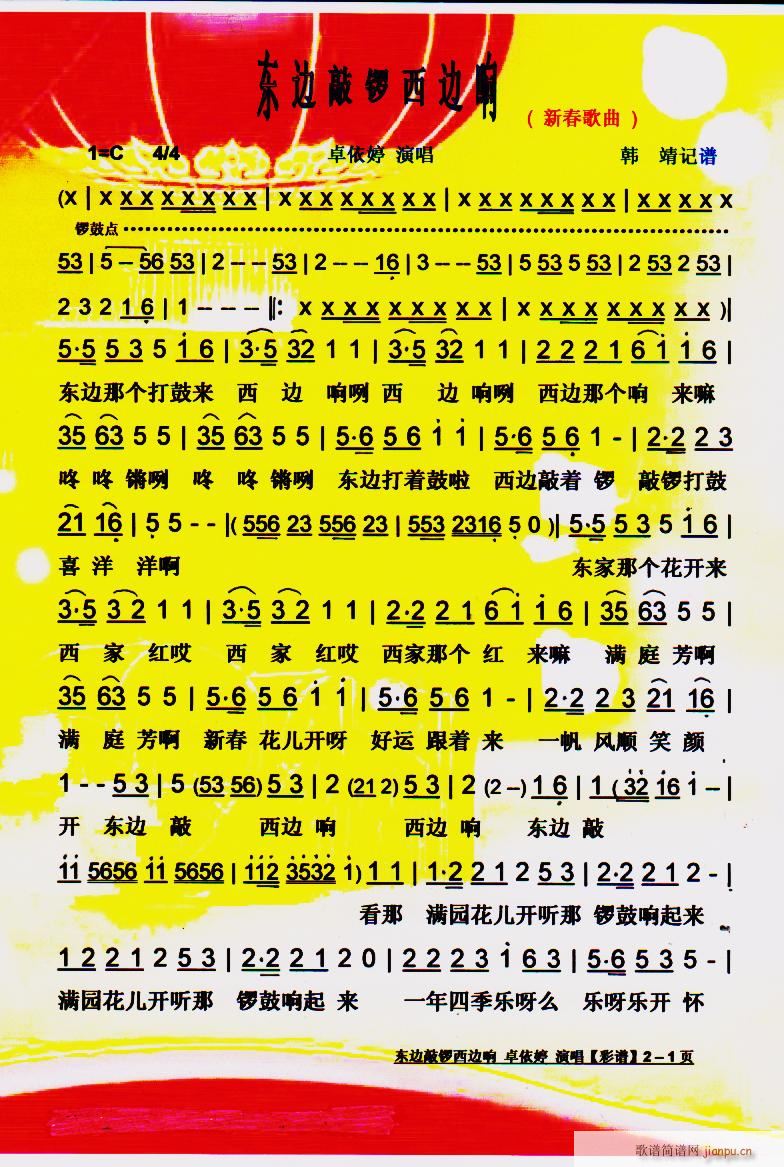 东边敲锣西边响
( 新春歌曲 )
1=C 4/4 卓依婷 演唱 韩 靖记谱
(X | X X X X X X X X | X X X X X X X X | X X X X X X X X | X X X X X
锣鼓点
53 | 5 – 56 53 | 2 – – 53 | 2 – – 16 | 3 – – 53 | 5 53 5 53 | 2 53 2 53 |
2 3 2 1 6 | 1 – – – ‖: X X X X X X X X | X X X X X X X X )|
5·5 5 3 5 1 6 | 3·5 32 1 1 | 3·5 32 1 1 | 2 2 2 1 6 1 1 6 |
东边那个打鼓来 西 边 响咧 西 边 响咧 西边那个响 来嘛
35 63 5 5 | 35 63 5 5 | 5·6 5 6 1 1 | 5·6 5 6 1 - | 2·2 2 3
咚 咚 锵咧 咚 咚 锵咧 东边打着鼓啦 西边敲着 锣 敲锣打鼓
21 16 | 5 5 - - |( 556 23 556 23 | 553 2316 5 0 )| 5·5 5 3 5 1 6 |
喜 洋 洋啊 东家那个花开来
3·5 3 2 1 1 | 3·5 3 2 1 1 | 2·2 2 1 6 1 1 6 | 35 63 5 5 |
西 家 红哎 西 家 红哎 西家那个 红 来嘛 满 庭 芳啊
35 63 5 5 | 5·6 5 6 1 1 | 5·6 5 6 1 - | 2·2 2 3 21 16 |
满 庭 芳啊 新春 花儿开呀 好运 跟着 来 一帆 风顺 笑 颜
1 - - 5 3 | 5 (53 56) 5 3 | 2 (21 2) 5 3 | 2 (2 –) 1 6 | 1 (32 16 1 – |
开 东边 敲 西边 响 西边 响 东边 敲
11 5656 11 5656 | 112 3532 1) 1 1 | 1·2 2 1 2 5 3 | 2·2 2 1 2 - |
看那 满园花儿开听那 锣鼓响起来
1 2 2 1 2 5 3 | 2·2 2 1 2 0 | 2 2 2 3 1 6 3 | 5·6 5 3 5 - |
满园花儿开听那 锣鼓响起 来 一年四季乐呀么 乐呀乐开 怀
东边敲锣西边响 卓依婷 演唱【彩谱】2－1页
歌谱简谱网 jianpu.cn